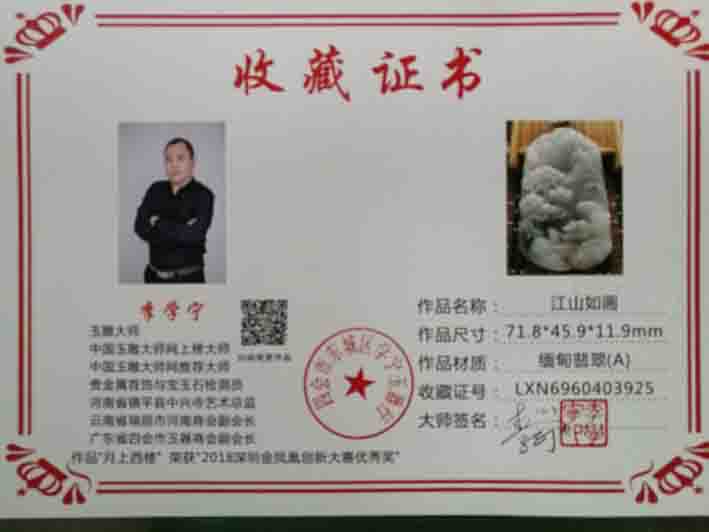 收藏证书
李学宁
玉雕大师
中国玉雕大师网上榜大师
中国玉雕大师网推荐大师
贵金属首饰与宝玉石检测员
河南省镇平县中兴寺艺术总监
云南省瑞丽市河南商会副会长
广东省四会市玉器商会副会长
作品"月上西楼" 荣获"2018深圳金凤凰创新大赛优秀奖"
作品名称： 江山如画
作品尺寸： 71.8*45.9*11.9mm
作品材质： 缅甸翡翠(A)
收藏证号： LXN6960403925
大师签名：